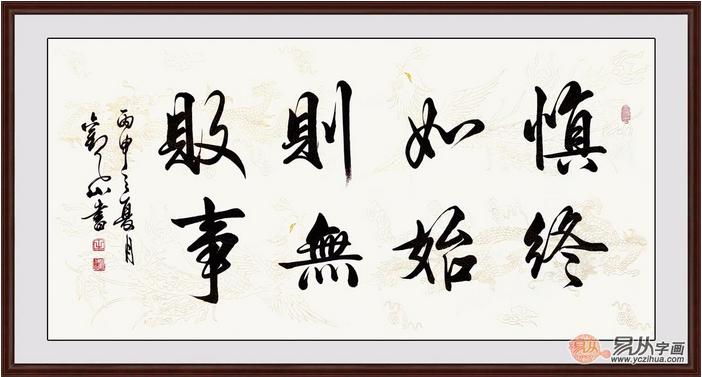 慎終
如始
則無
敗事
丙申之夏月
山書
易从
易从字画
www.yczihua.com